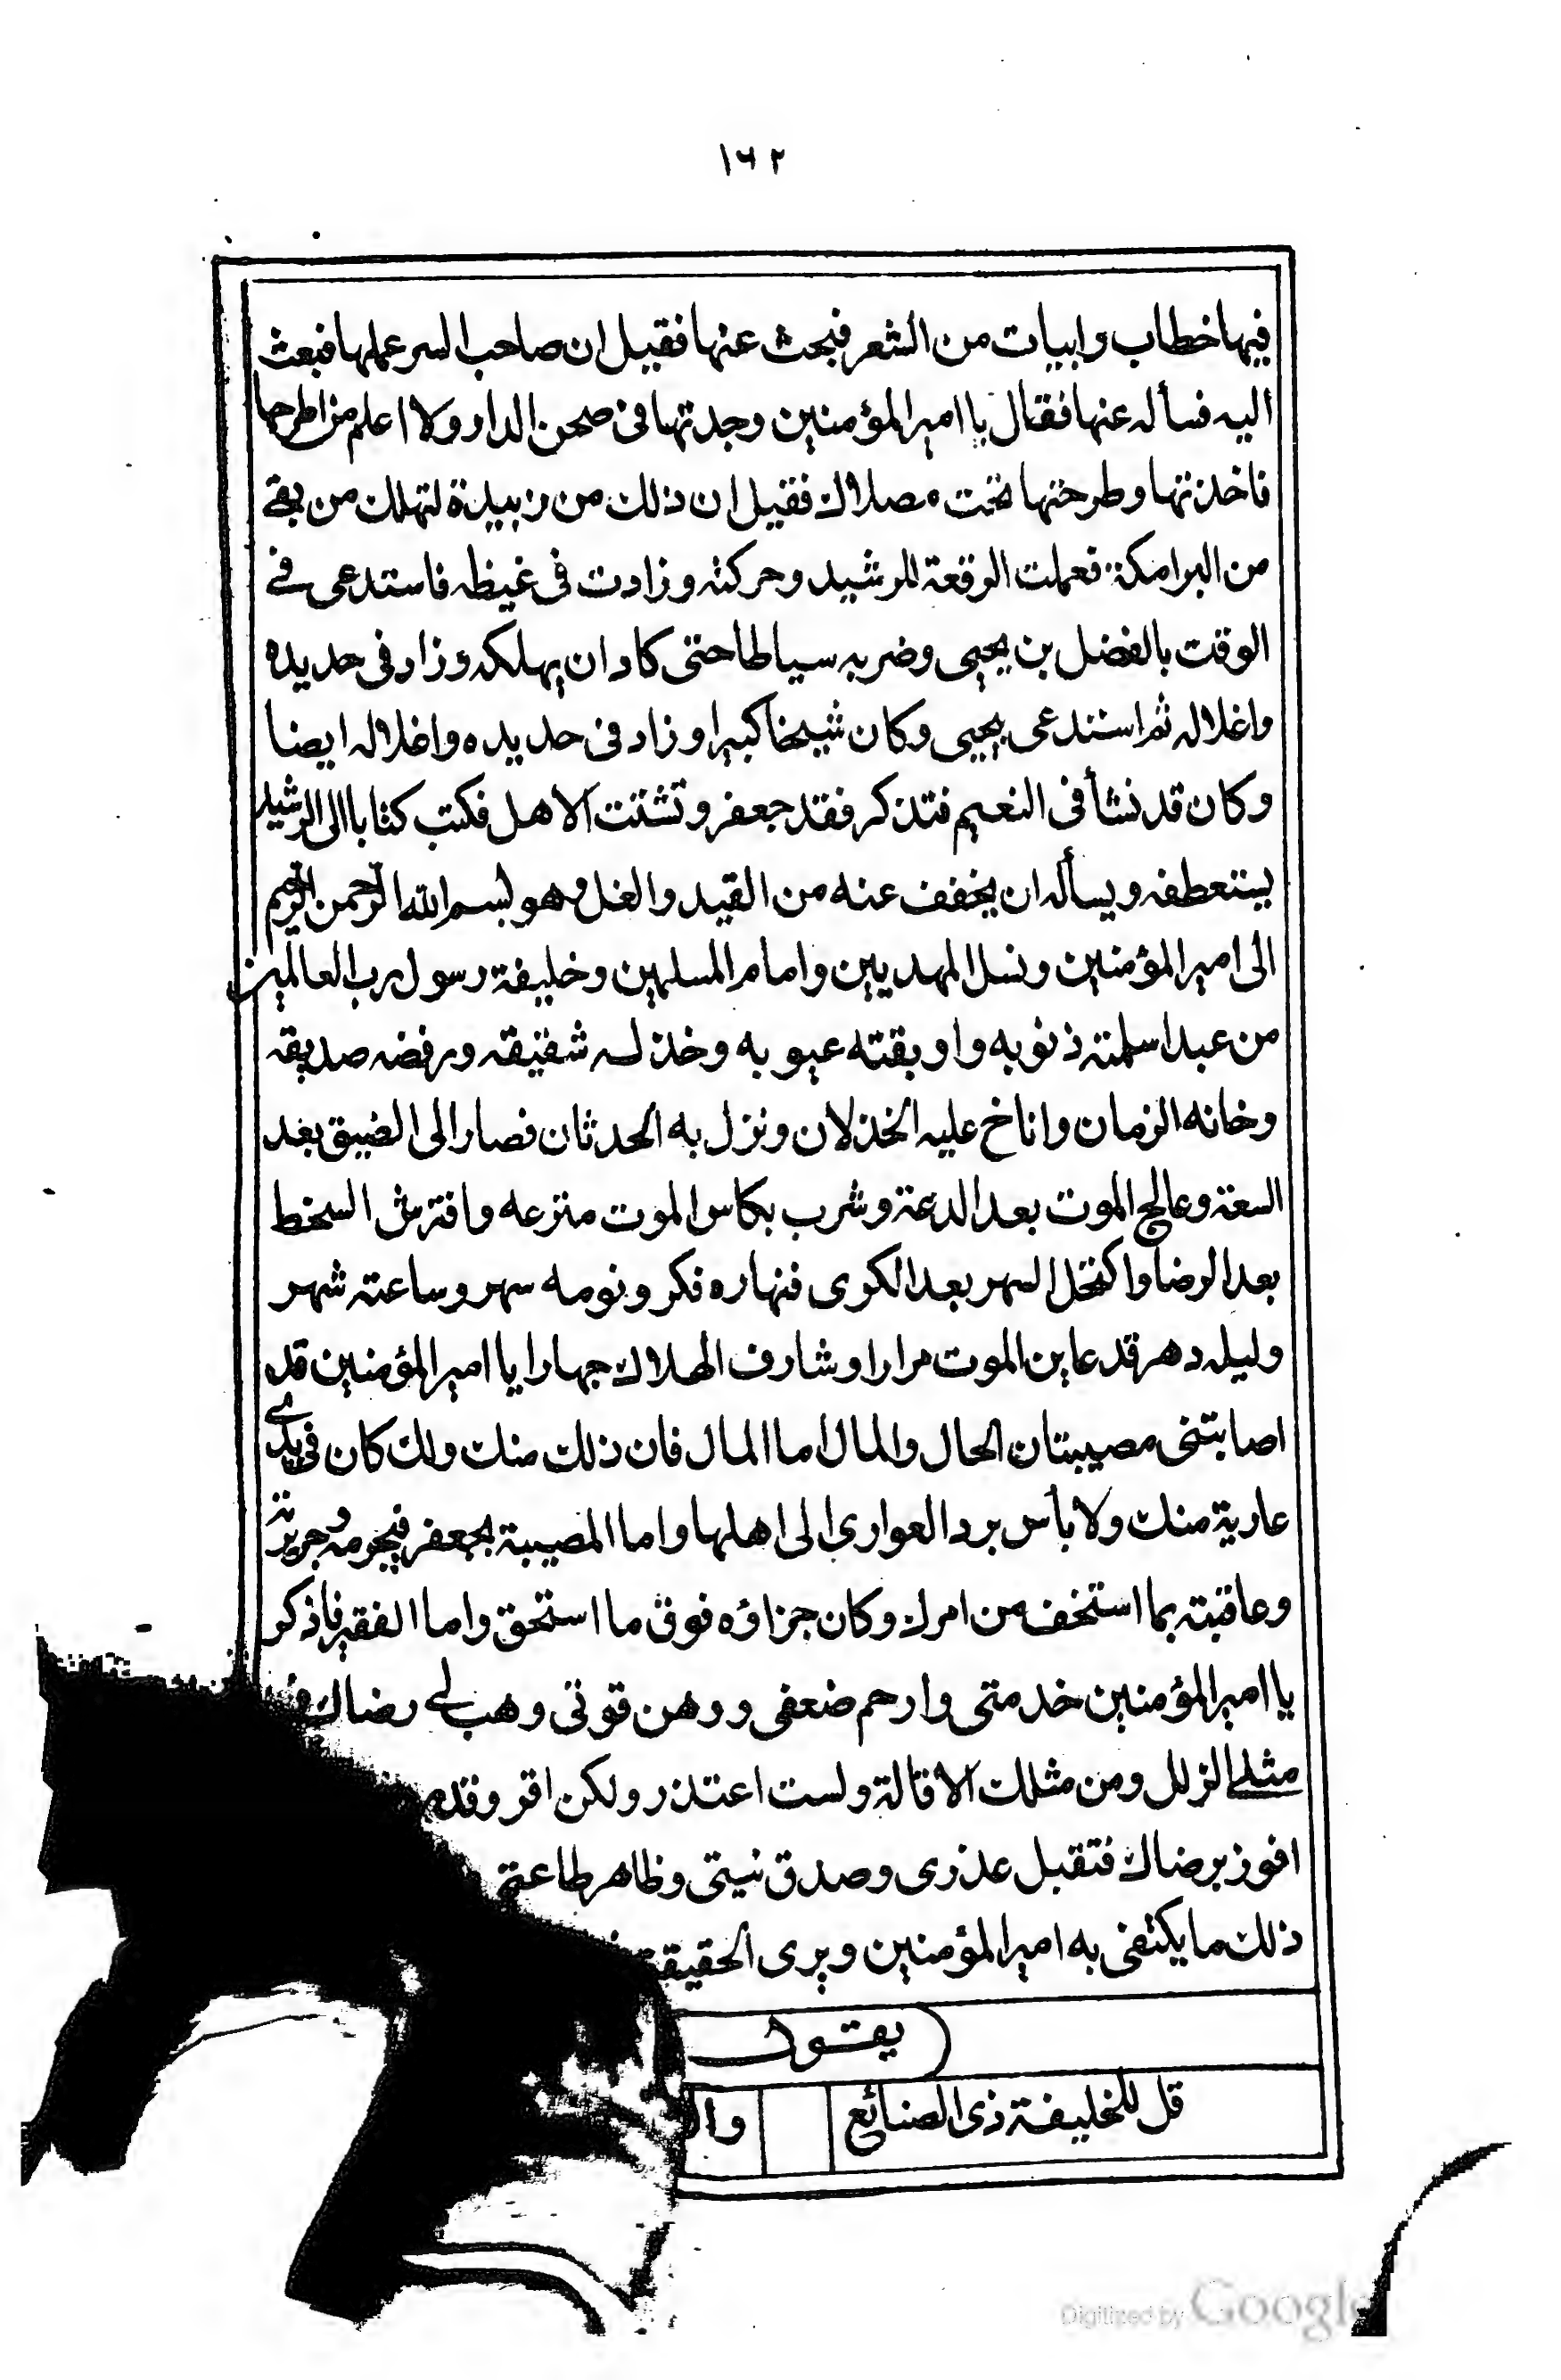 ١٦٢
فيها خطاب وابيات من الشعر فبحث عنها فقيل ان صاحب السر عملها فبعث
اليه فسأله عنها فقال يا امير المؤمنين وجدتها فى صحن الدار ولا اعلم من اطرحها
فاخذتها وطرحتها تحت مصلاك فقيل ان ذلك من زبيدة لتهلك من بقے
من البرامكة فعملت الرقعة للرشيد وحركته وزادت فى غيظه فاستدعى فے
الوقت بالفضل بن يحيى وضربه سياطا حتى كاد ان يهلكه وزاد فى حديده
واغلاله ثم استدعى بيحيى وكان شيخا كبيرا وزاد فى حديده واغلاله ايضا
وكان قد نشأ فى النعيم فتذكر فقد جعفر وتشتت الاهل فكتب كتابا الى الرشيد
يستعطفه ويسأله ان يخفف عنه من القيد والغل وهو بسم الله الرحمن الرحيم
الى امير المؤمنين ونسل المهديين وامام المسلمين وخليفة رسول رب العالمين
من عبد اسلمته ذنوبه واوبقته عيوبه وخذله شفيقه ورفضه صديقه
وخانه الزمان واناخ عليه الخذلان ونزل به الحدثان فصار الى الضيق بعد
السعة وعالج الموت بعد الدعة وشرب بكاس الموت منزعه وافترش السخط
بعد الرضا واكتحل السهر بعد الكرى فنهاره فكر ونومه سهر وساعته شهر
وليله دهر قد عاين الموت مرارا وشارف الهلاك جهارا يا امير المؤمنين قد
اصابتنى مصيبتان الحال والمال اما المال فان ذلك منك ولك كان فى يدے
عارية منك ولا بأس برد العوارى الى اهلها واما المصيبة بجعفر فبجرمه وجريرته
وعاقبته بما استخف من امرك وكان جزاؤه فوق ما استحق واما الفقير فاذكر
يا امير المؤمنين خدمتى وارحم ضعفى ووهن قوتى وهب لے رضاك
مثلے الزلل ومن مثلك الاقالة ولست اعتذر ولكن اقر وقد
افوز برضاك فتقبل عذرى وصدق نيتى وظاهر طاعتى
ذلك ما يكتفى به امير المؤمنين ويرى الحقيقة
يقول
قل للخليفة ذى الصنائع